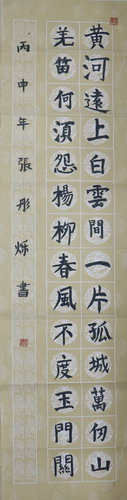 黃河遠上白雲間一片孤城萬仞山
羌笛何湏怨楊柳春風不度玉門關
丙申年張彤烁書